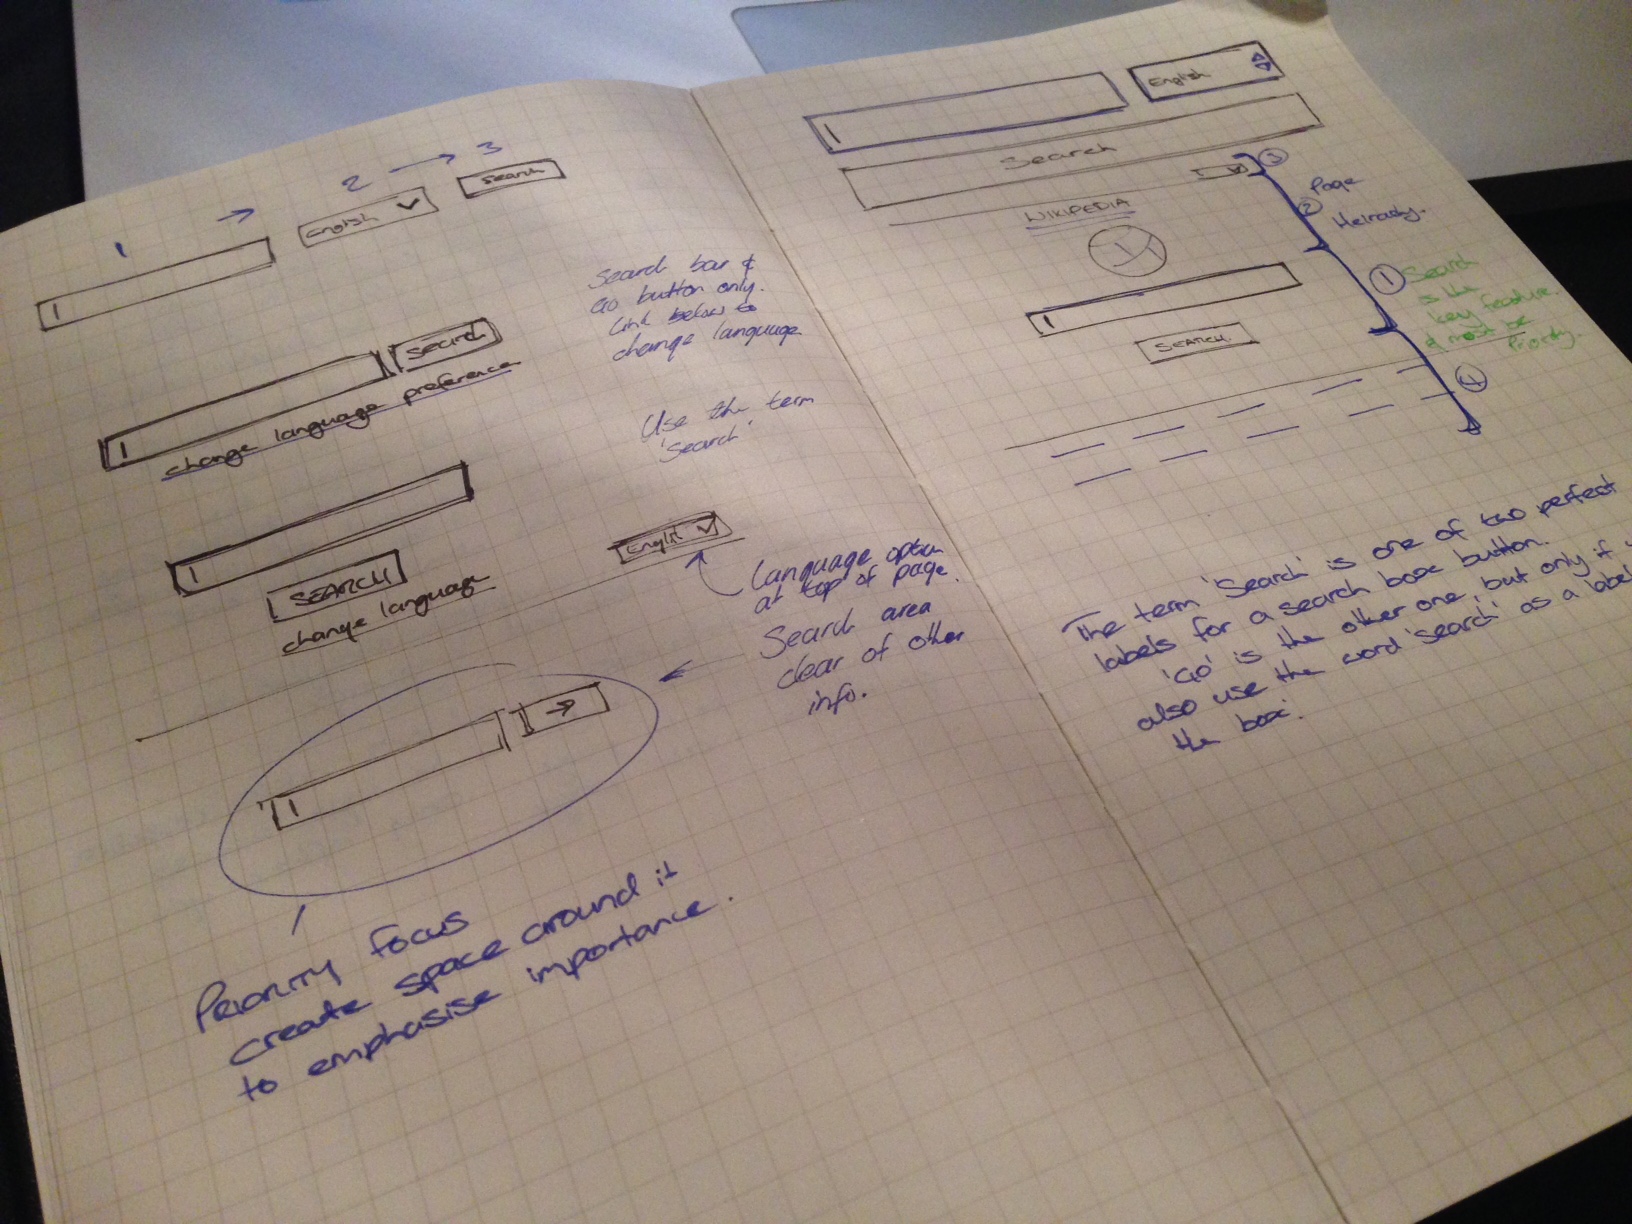 1 → 2 → 3
English
Search
Search bar &
Go button only.
Link below to
change language
Search
change language preference
Use the term
'Search'
SEARCH
change language
English
Language option
at top of page.
Search area
clear of other
info.
→
PRIORITY FOCUS
create space around it
to emphasise importance.
English
Search
WIKIPEDIA
SEARCH
3
Page
2
Heirachy.
1
Search
is the
key feature
& must be
Priority.
4
The term 'Search' is one of two perfect
labels for a search box button.
'GO' is the other one, but only if
also use the word 'search' as a label
the box'.